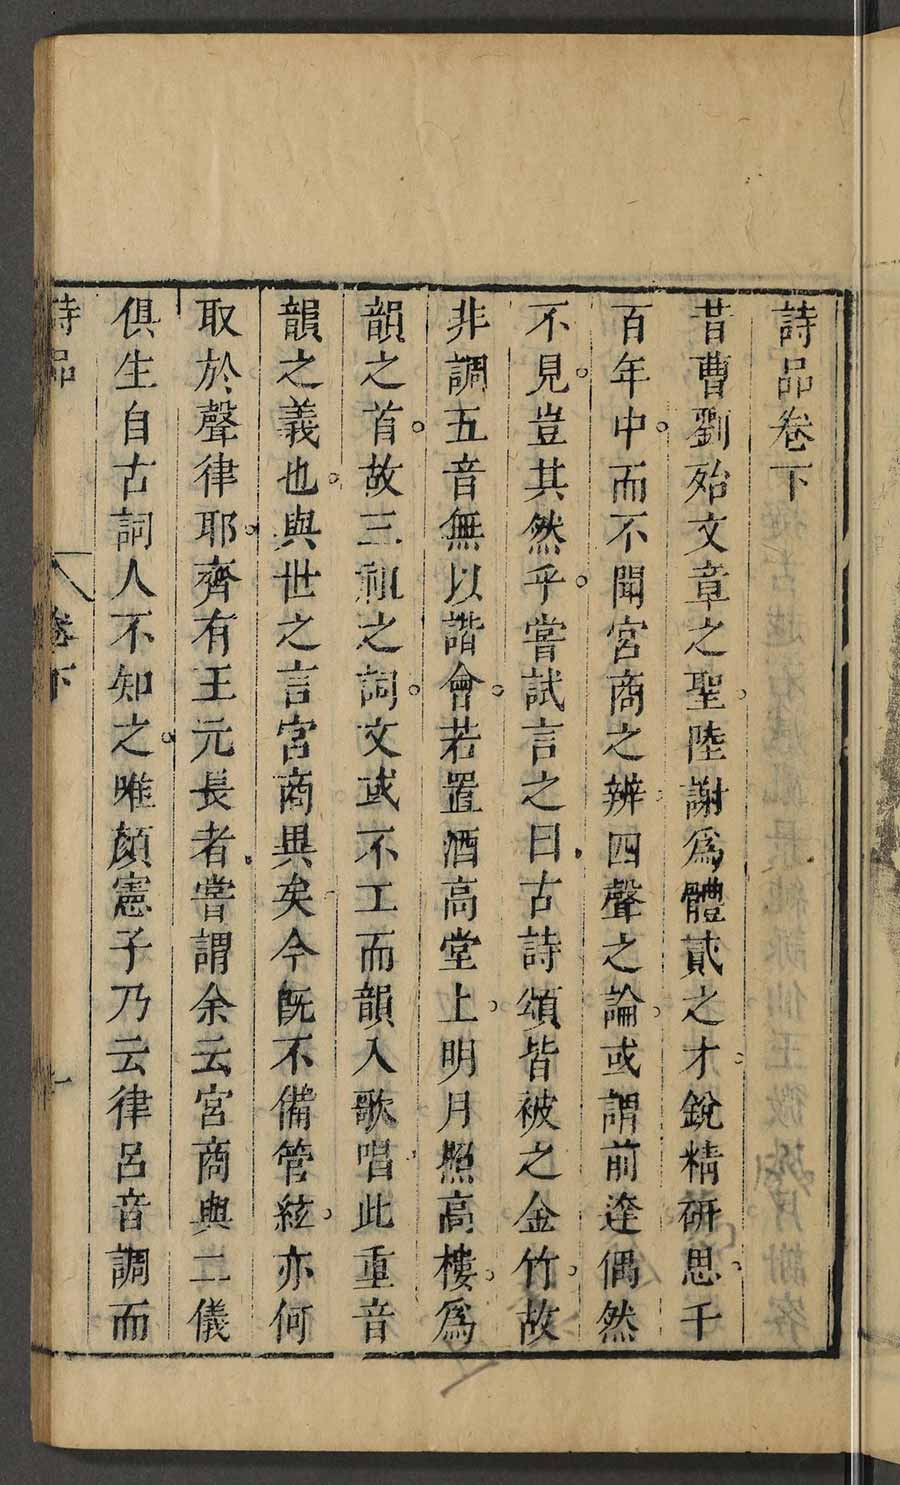 詩品卷下
昔曹劉殆文章之聖陸謝爲體貳之才銳精硏思千
百年中而不聞宮商之辨四聲之論或謂前達偶然
不見豈其然乎嘗試言之曰古詩頌皆被之金竹故
非調五音無以諧會若置酒高堂上明月照高樓爲
韻之首故三祖之詞文或不工而韻入歌唱此重音
韻之義也與世之言宮商異矣今旣不備管絃亦何
取於聲律耶齊有王元長者嘗謂余云宮商與二儀
俱生自古詞人不知之唯顏憲子乃云律呂音調而
詩品
卷下
一